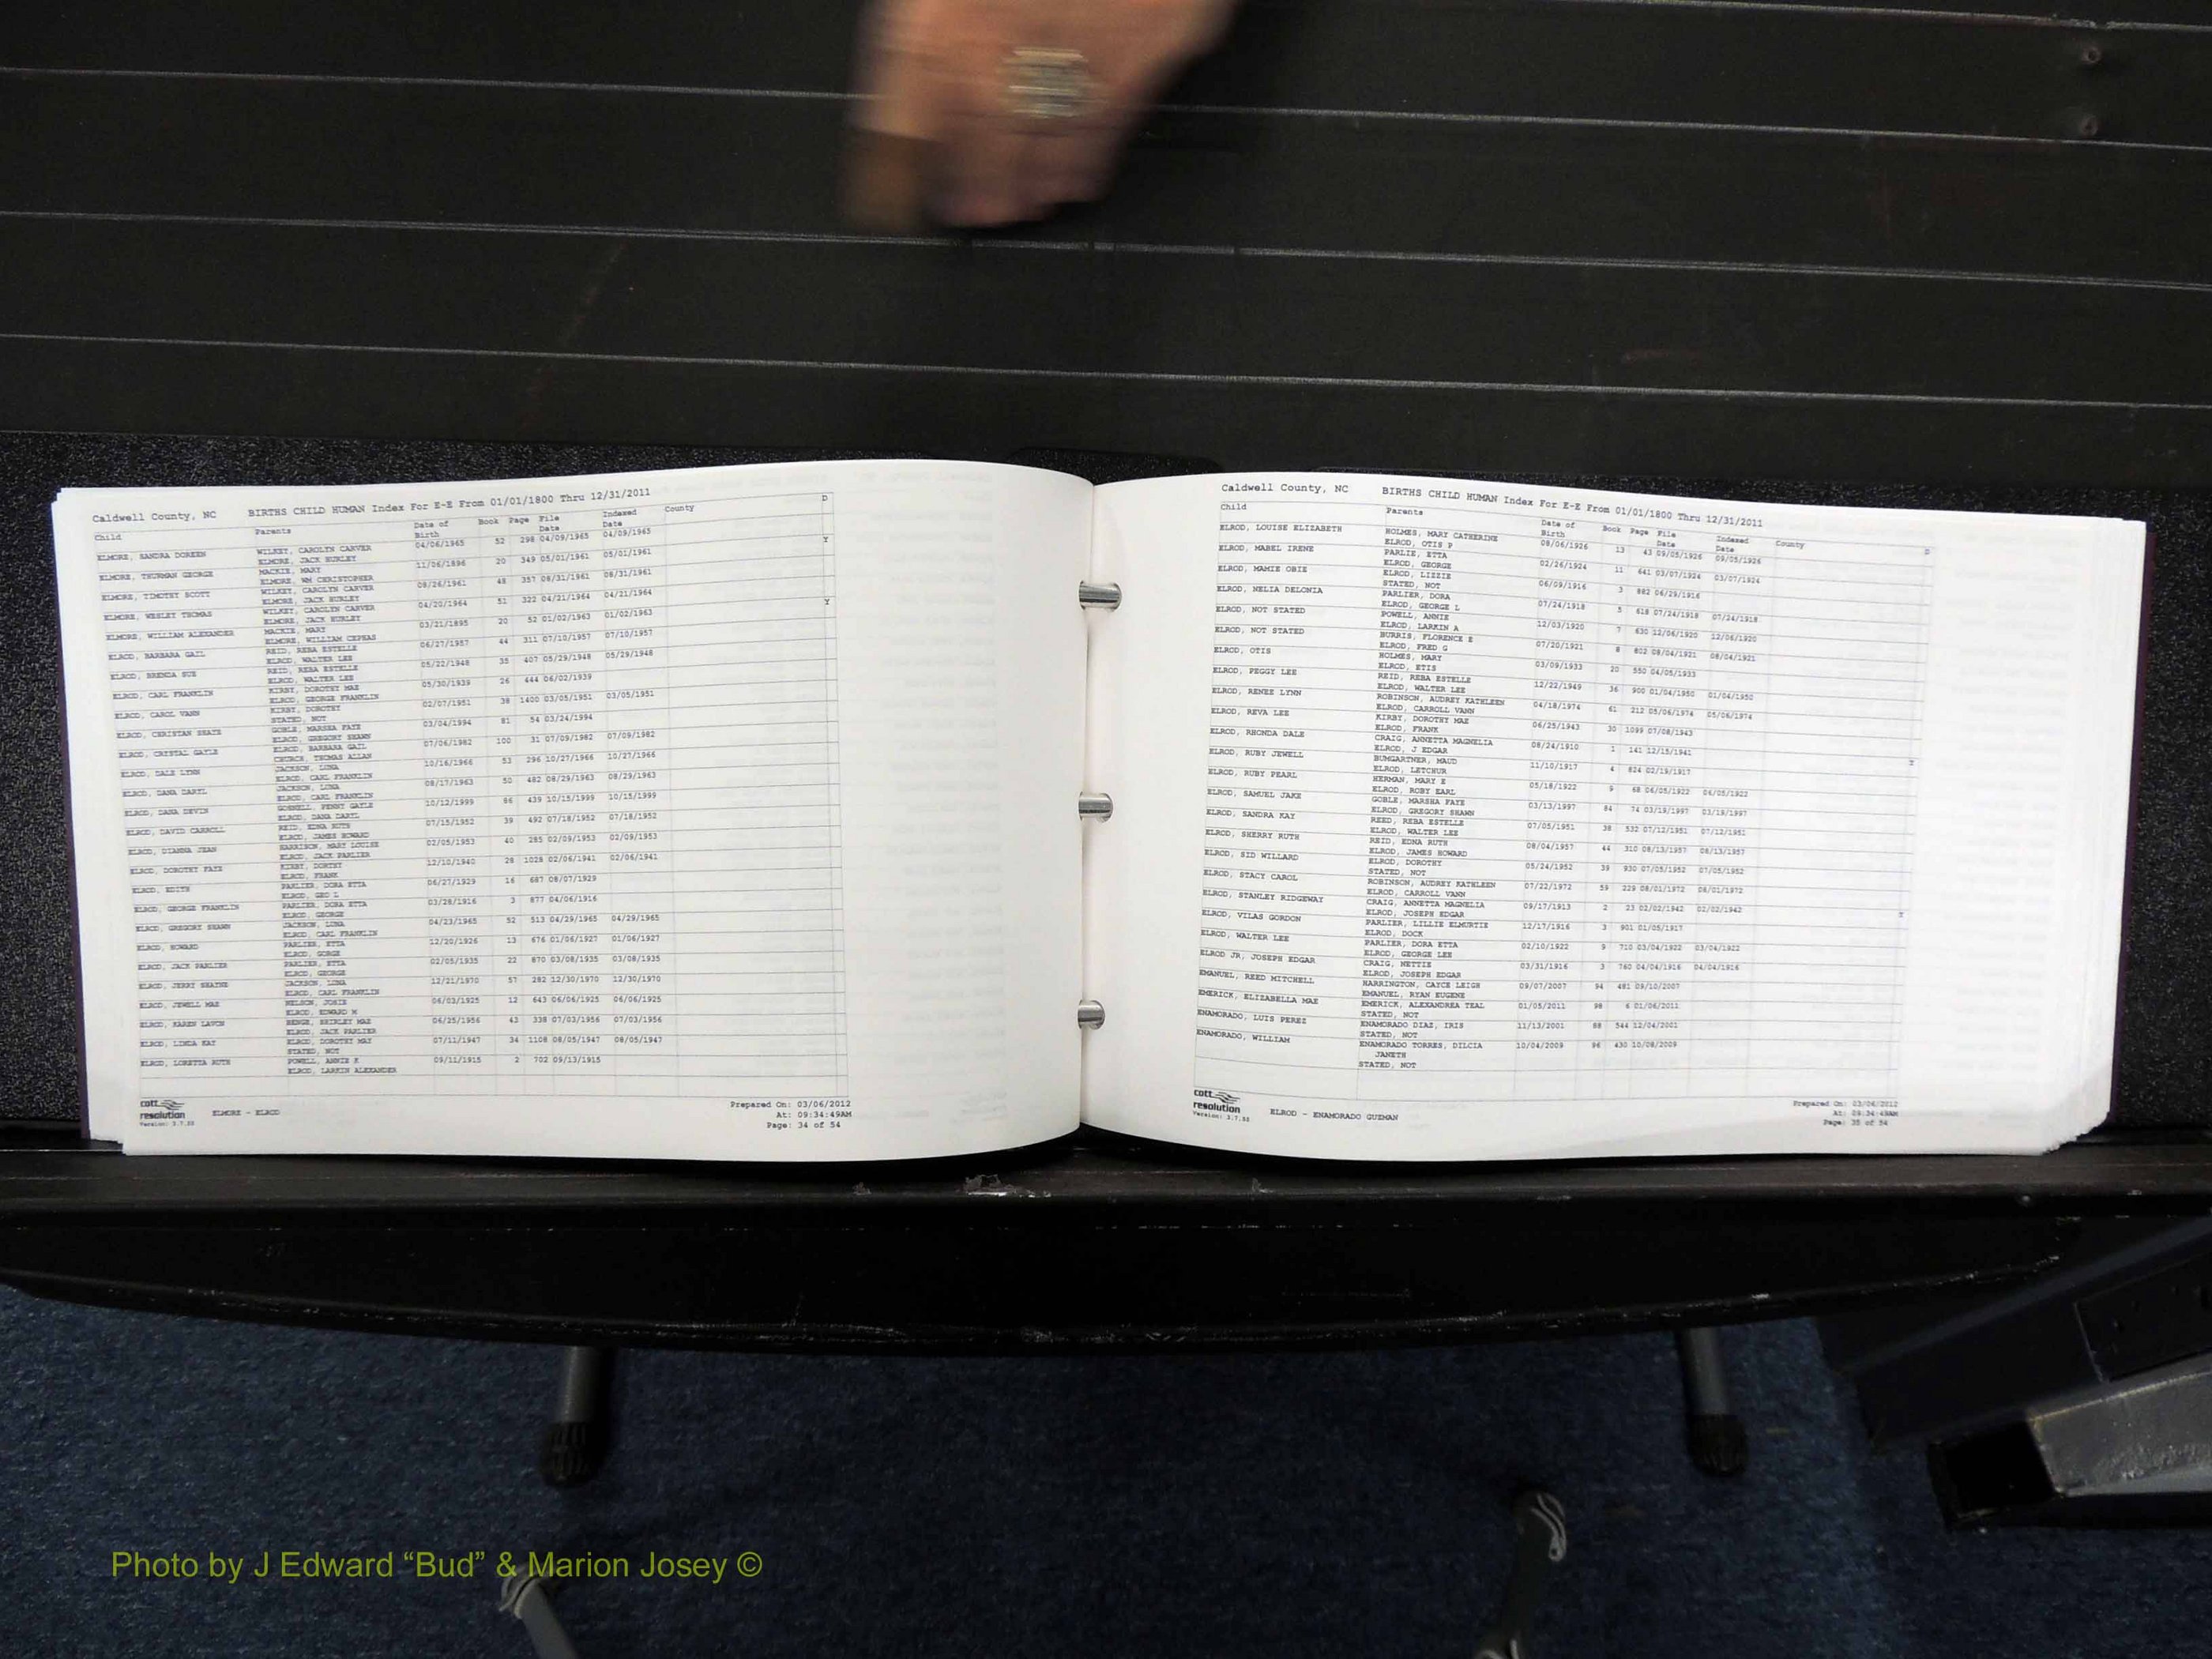 Caldwell County, NC BIRTHS CHILD HUMAN Index For E-E From 01/01/1800 Thru 12/31/2011
Child Parents Date of Birth Book Page File Date Indexed Date County D
ELMORE, SANDRA DOREEN WILKEY, CAROLYN CARVER 04/06/1965 52 298 04/09/1965 04/09/1965
ELMORE, JACK HURLEY
ELMORE, THURMAN GEORGE MACKIE, MARY 11/06/1896 20 349 05/01/1961 05/01/1961 Y
ELMORE, WM CHRISTOPHER
ELMORE, TIMOTHY SCOTT WILKEY, CAROLYN CARVER 08/26/1961 48 357 08/31/1961 08/31/1961
ELMORE, JACK HURLEY
ELMORE, WESLEY THOMAS WILKEY, CAROLYN CARVER 04/20/1964 51 322 04/21/1964 04/21/1964
ELMORE, JACK HURLEY
ELMORE, WILLIAM ALEXANDER MACKIE, MARY 03/21/1895 20 52 01/02/1963 01/02/1963 Y
ELMORE, WILLIAM CEPHAS
ELROD, BARBARA GAIL REID, REBA ESTELLE 06/27/1957 44 311 07/10/1957 07/10/1957
ELROD, WALTER LEE
ELROD, BRENDA SUE REID, REBA ESTELLE 05/22/1948 35 407 05/29/1948 05/29/1948
ELROD, WALTER LEE
ELROD, CARL FRANKLIN KIRBY, DOROTHY MAE 05/30/1939 26 444 06/02/1939
ELROD, GEORGE FRANKLIN
ELROD, CAROL VANN KIRBY, DOROTHY 02/07/1951 38 1400 03/05/1951 03/05/1951
STATED, NOT
ELROD, CHRISTAN SHATE GOBLE, MARSHA FAYE 03/04/1994 81 54 03/24/1994
ELROD, GREGORY SHAWN
ELROD, CRYSTAL GAYLE ELROD, BARBARA GAIL 07/06/1982 100 31 07/09/1982 07/09/1982
CHURCH, THOMAS ALLAN
ELROD, DALE LYNN JACKSON, LUNA 10/16/1966 53 296 10/27/1966 10/27/1966
ELROD, CARL FRANKLIN
ELROD, DANA DARYL JACKSON, LUNA 08/17/1963 50 482 08/29/1963 08/29/1963
ELROD, CARL FRANKLIN
ELROD, DANA DEVIN GOSNELL, PENNY GAYLE 10/12/1999 86 439 10/15/1999 10/15/1999
ELROD, DANA DARYL
ELROD, DAVID CARROLL REID, EDNA RUTH 07/15/1952 39 492 07/18/1952 07/18/1952
ELROD, JAMES HOWARD
ELROD, DIANNA JEAN HARRISON, MARY LOUISE 02/05/1953 40 285 02/09/1953 02/09/1953
ELROD, JACK PARLIER
ELROD, DOROTHY FAYE KIRBY, DORTHY 12/10/1940 28 1028 02/06/1941 02/06/1941
ELROD, FRANK
ELROD, EDITH PARLIER, DORA ETTA 06/27/1929 16 687 08/07/1929
ELROD, GEO L
ELROD, GEORGE FRANKLIN PARLIER, DORA ETTA 03/28/1916 3 877 04/06/1916
ELROD, GEORGE
ELROD, GREGORY SHAWN JACKSON, LUNA 04/23/1965 52 513 04/29/1965 04/29/1965
ELROD, CARL FRANKLIN
ELROD, HOWARD PARLIER, ETTA 12/20/1926 13 676 01/06/1927 01/06/1927
ELROD, GORGE
ELROD, JACK PARLIER PARLIER, ETTA 02/05/1935 22 870 03/08/1935 03/08/1935
ELROD, GEORGE
ELROD, JERRY SHAYNE JACKSON, LUNA 12/21/1970 57 282 12/30/1970 12/30/1970
ELROD, CARL FRANKLIN
ELROD, JEWELL MAE NELSON, JOSIE 06/03/1925 12 643 06/06/1925 06/06/1925
ELROD, EDWARD M
ELROD, KAREN LAVON BENGE, SHIRLEY MAE 06/25/1956 43 338 07/03/1956 07/03/1956
ELROD, JACK PARLIER
ELROD, LINDA KAY ELROD, DOROTHY MAY 07/11/1947 34 1108 08/05/1947 08/05/1947
STATED, NOT
ELROD, LORETTA RUTH POWELL, ANNIE K 09/11/1915 2 702 09/13/1915
ELROD, LARKIN ALEXANDER
cott resolution Version: 3.7.32 ELMORE - ELROD
Prepared On: 03/06/2012
At: 09:34:49AM
Page: 34 of 54
Caldwell County, NC BIRTHS CHILD HUMAN Index For E-E From 01/01/1800 Thru 12/31/2011
Child Parents Date of Birth Book Page File Date Indexed Date County D
ELROD, LOUISE ELIZABETH HOLMES, MARY CATHERINE 08/06/1926 13 43 09/05/1926 09/05/1926
ELROD, OTIS P
ELROD, MABEL IRENE PARLIE, ETTA 02/26/1924 11 641 03/07/1924 03/07/1924
ELROD, GEORGE
ELROD, MAMIE OBIE ELROD, LIZZIE 06/09/1916 3 882 06/29/1916
STATED, NOT
ELROD, NELIA DELONIA PARLIER, DORA 07/24/1918 5 618 07/24/1918 07/24/1918
ELROD, GEORGE L
ELROD, NOT STATED POWELL, ANNIE 12/03/1920 7 630 12/06/1920 12/06/1920
ELROD, LARKIN A
ELROD, NOT STATED BURRIS, FLORENCE E 07/20/1921 8 802 08/04/1921 08/04/1921
ELROD, FRED G
ELROD, OTIS HOLMES, MARY 03/09/1933 20 550 04/05/1933
ELROD, ETIS
ELROD, PEGGY LEE REID, REBA ESTELLE 12/22/1949 36 900 01/04/1950 01/04/1950
ELROD, WALTER LEE
ELROD, RENEE LYNN ROBINSON, AUDREY KATHLEEN 04/18/1974 61 212 05/06/1974 05/06/1974
ELROD, CARROLL VANN
ELROD, REVA LEE KIRBY, DOROTHY MAE 06/25/1943 30 1099 07/08/1943
ELROD, FRANK
ELROD, RHONDA DALE CRAIG, ANNETTA MAGNELIA 08/24/1910 1 141 12/15/1941 Y
ELROD, J EDGAR
ELROD, RUBY JEWELL BUMGARTNER, MAUD 11/10/1917 4 824 02/19/1917
ELROD, LETCHUR
ELROD, RUBY PEARL HERMAN, MARY E 05/18/1922 9 68 06/05/1922 06/05/1922
ELROD, ROBY EARL
ELROD, SAMUEL JAKE GOBLE, MARSHA FAYE 03/13/1997 84 74 03/19/1997 03/19/1997
ELROD, GREGORY SHAWN
ELROD, SANDRA KAY REED, REBA ESTELLE 07/05/1951 38 532 07/12/1951 07/12/1951
ELROD, WALTER LEE
ELROD, SHERRY RUTH REID, EDNA RUTH 08/04/1957 44 310 08/13/1957 08/13/1957
ELROD, JAMES HOWARD
ELROD, SID WILLARD ELROD, DOROTHY 05/24/1952 39 930 07/05/1952 07/05/1952
STATED, NOT
ELROD, STACY CAROL ROBINSON, AUDREY KATHLEEN 07/22/1972 59 229 08/01/1972 08/01/1972
ELROD, CARROLL VANN
ELROD, STANLEY RIDGEWAY CRAIG, ANNETTA MAGNELIA 09/17/1913 2 23 02/02/1942 02/02/1942 Y
ELROD, JOSEPH EDGAR
ELROD, VILAS GORDON PARLIER, LILLIE ELMURTIE 12/17/1916 3 901 01/05/1917
ELROD, DOCK
ELROD, WALTER LEE PARLIER, DORA ETTA 02/10/1922 9 710 03/04/1922 03/04/1922
ELROD, GEORGE LEE
ELROD JR, JOSEPH EDGAR CRAIG, NETTIE 03/31/1916 3 760 04/04/1916 04/04/1916
ELROD, JOSEPH EDGAR
EMANUEL, REED MITCHELL HARRINGTON, CAYCE LEIGH 09/07/2007 94 481 09/10/2007
EMANUEL, RYAN EUGENE
EMERICK, ELIZABELLA MAE EMERICK, ALEXANDREA TEAL 01/05/2011 98 6 01/06/2011
STATED, NOT
ENAMORADO, LUIS PEREZ ENAMORADO DIAZ, IRIS 11/13/2001 88 544 12/04/2001
STATED, NOT
ENAMORADO, WILLIAM ENAMORADO TORRES, DILCIA 10/04/2009 96 430 10/08/2009
JANETH
STATED, NOT
cott resolution Version: 3.7.32 ELROD - ENAMORADO GUZMAN
Prepared On: 03/06/2012
At: 09:34:49AM
Page: 35 of 54
Photo by J Edward “Bud” & Marion Josey ©